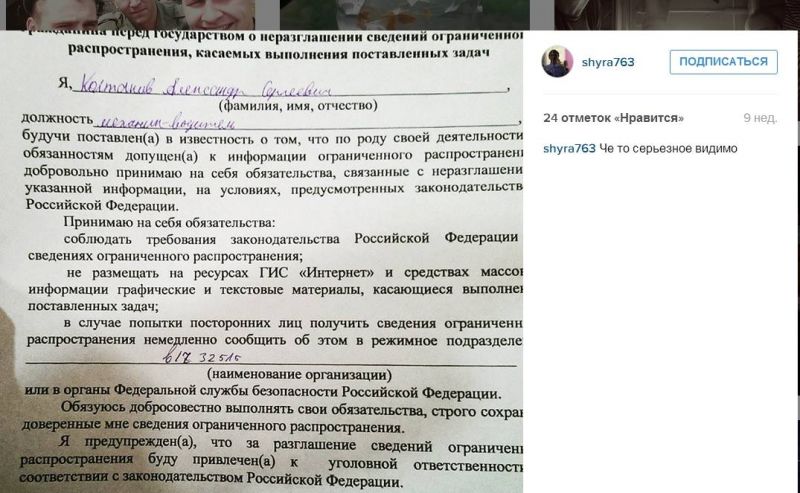 гражданина перед государством о неразглашении сведений ограниченно
распространения, касаемых выполнения поставленных задач
Я, Александр Сергеевич,
(фамилия, имя, отчество)
должность механик-водитель,
будучи поставлен(а) в известность о том, что по роду своей деятельности
обязанностям допущен(а) к информации ограниченного распространени
добровольно принимаю на себя обязательства, связанные с неразглашени
указанной информации, на условиях, предусмотренных законодательств
Российской Федерации.
Принимаю на себя обязательства:
соблюдать требования законодательства Российской Федерации
сведениях ограниченного распространения;
не размещать на ресурсах ГИС «Интернет» и средствах массов
информации графические и текстовые материалы, касающиеся выполнен
поставленных задач;
в случае попытки посторонних лиц получить сведения ограниченн
распространения немедленно сообщить об этом в режимное подразделе
в/ч 32515
(наименование организации)
или в органы Федеральной службы безопасности Российской Федерации.
Обязуюсь добросовестно выполнять свои обязательства, строго сохран
доверенные мне сведения ограниченного распространения.
Я предупрежден(а), что за разглашение сведений ограничен
распространения буду привлечен(а) к уголовной ответственност
соответствии с законодательством Российской Федерации.
shyra763 ПОДПИСАТЬСЯ
24 отметок «Нравится» 9 нед.
shyra763 Че то серьезное видимо